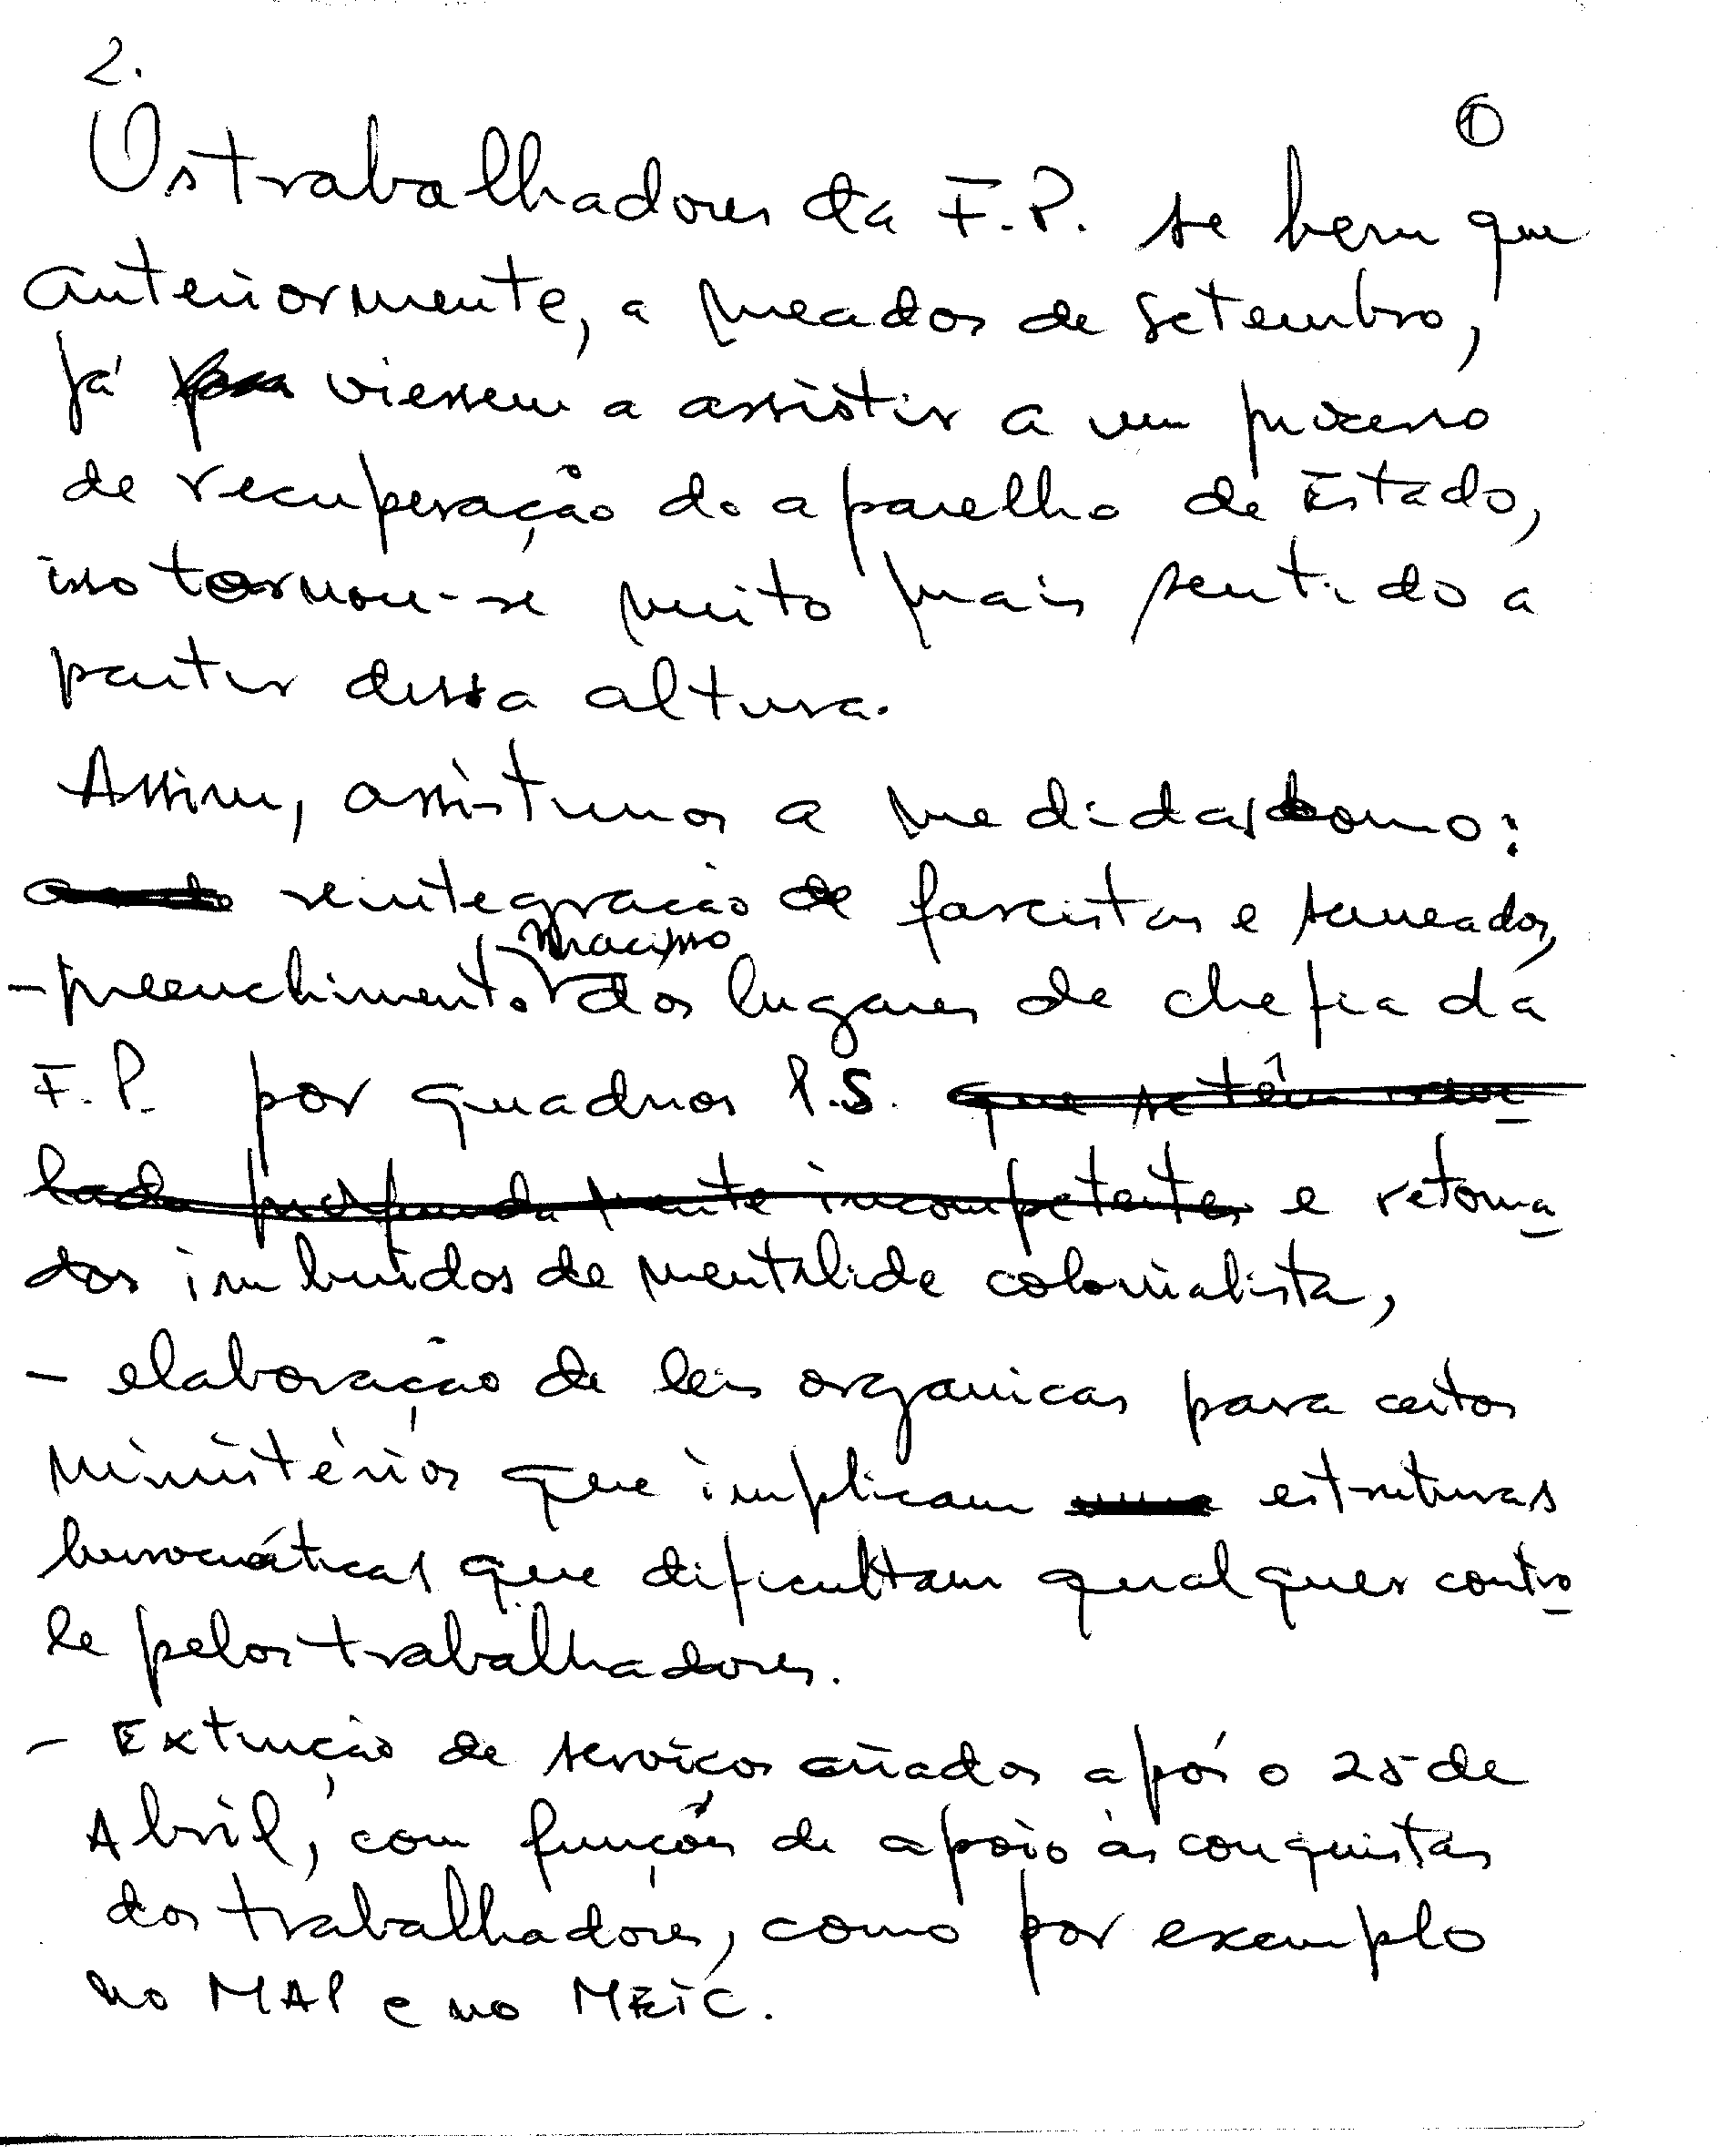 2.
①
Os trabalhadores da F.P. se bem que
anteriormente, a meados de Setembro,
já viessem a assistir a um processo
de recuperação do aparelho de Estado,
isso tornou-se muito mais sentido a
partir dessa altura.
Assim, assistimos a medidas como:
reintegração de fascistas e saneados,
macisso
- preenchimento dos lugares de chefia da
F.P. por quadros P.S. que se têm reve-
lado profundamente incompetentes e retorna-
dos imbuídos de mentalide colonialista,
- elaboração de leis organicas para certos
Ministérios que implicam estruturas
burocráticas que dificultam qualquer contro-
le pelos trabalhadores.
- Extinção de serviços criados após o 25 de
Abril, com funções de apoio às conquistas
dos trabalhadores, como por exemplo
no MAP e no MEIC.